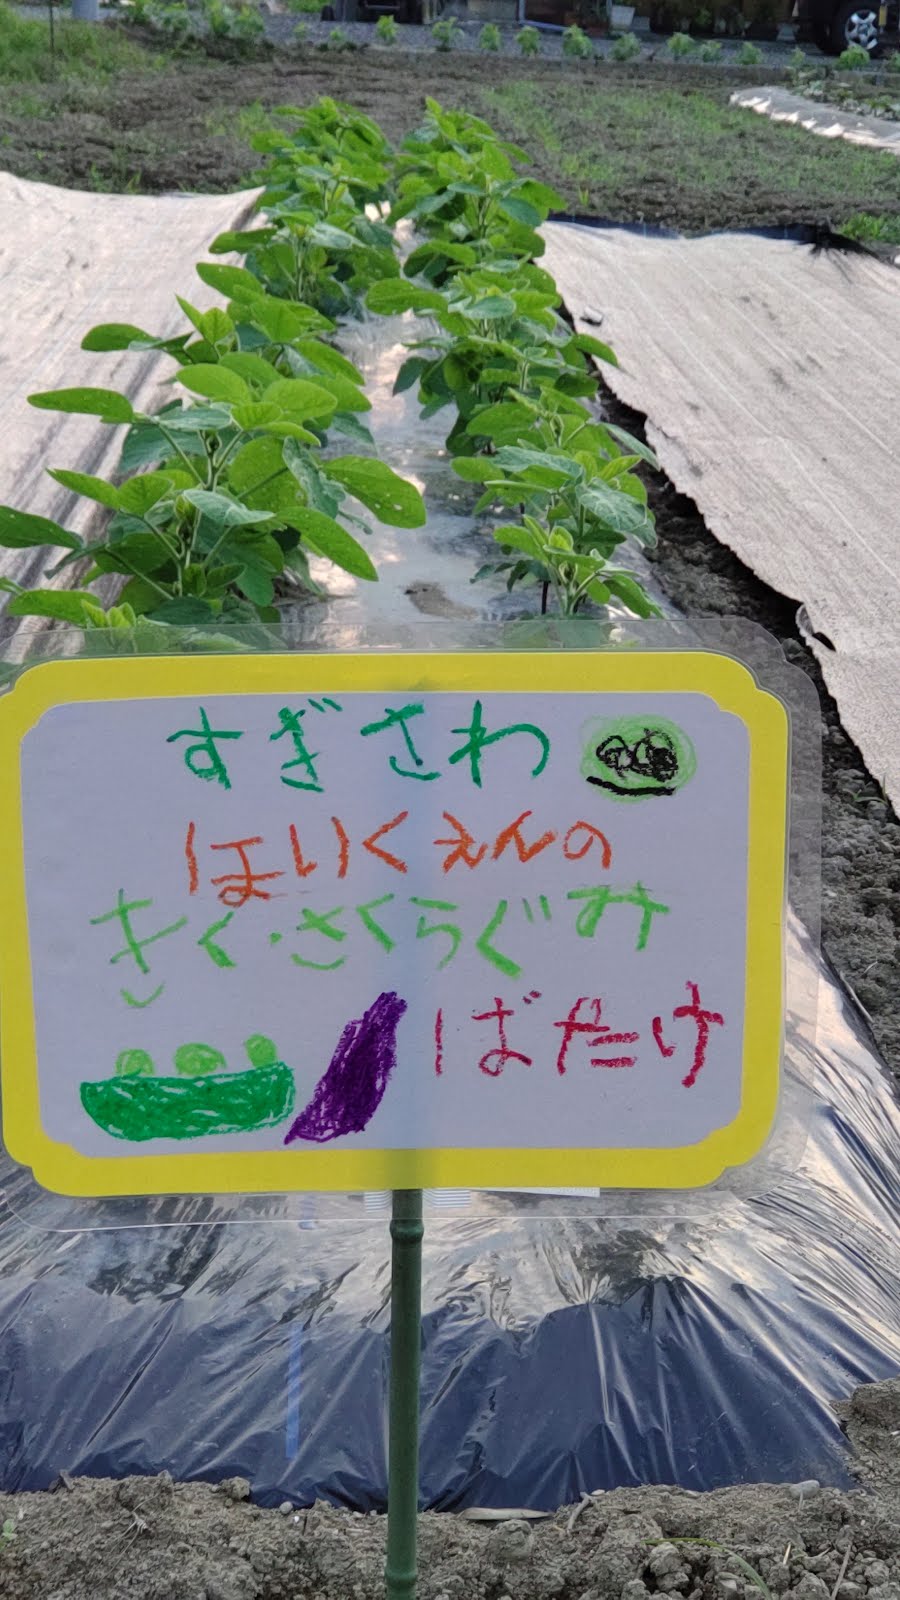 すぎさわ
ほいくえんの
きく・さくらぐみ
ばたけ